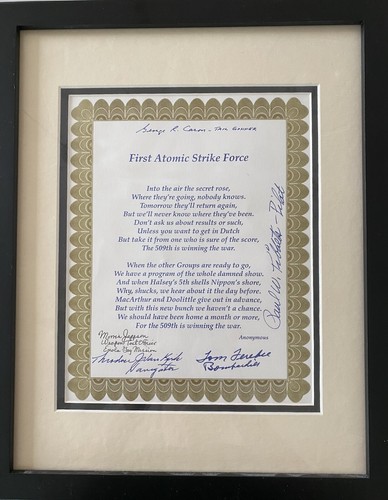 George R. Caron - Tail Gunner
First Atomic Strike Force
Into the air the secret rose,
Where they're going, nobody knows.
Tomorrow they'll return again,
But we'll never know where they've been.
Don't ask us about results or such,
Unless you want to get in Dutch
But take it from one who is sure of the score,
The 509th is winning the war.
When the other Groups are ready to go,
We have a program of the whole damned show.
And when Halsey's 5th shells Nippon's shore,
Why, shucks, we hear about it the day before.
MacArthur and Doolittle give out in advance,
But with this new bunch we haven't a chance.
We should have been home a month or more,
For the 509th is winning the war.
Anonymous
Paul W. Tibbets - Pilot
Morris Jeppson
Weapon Test Officer
Enola Gay Mission
Theodore J Van Kirk
Navigator
Tom Ferebee
Bombardier